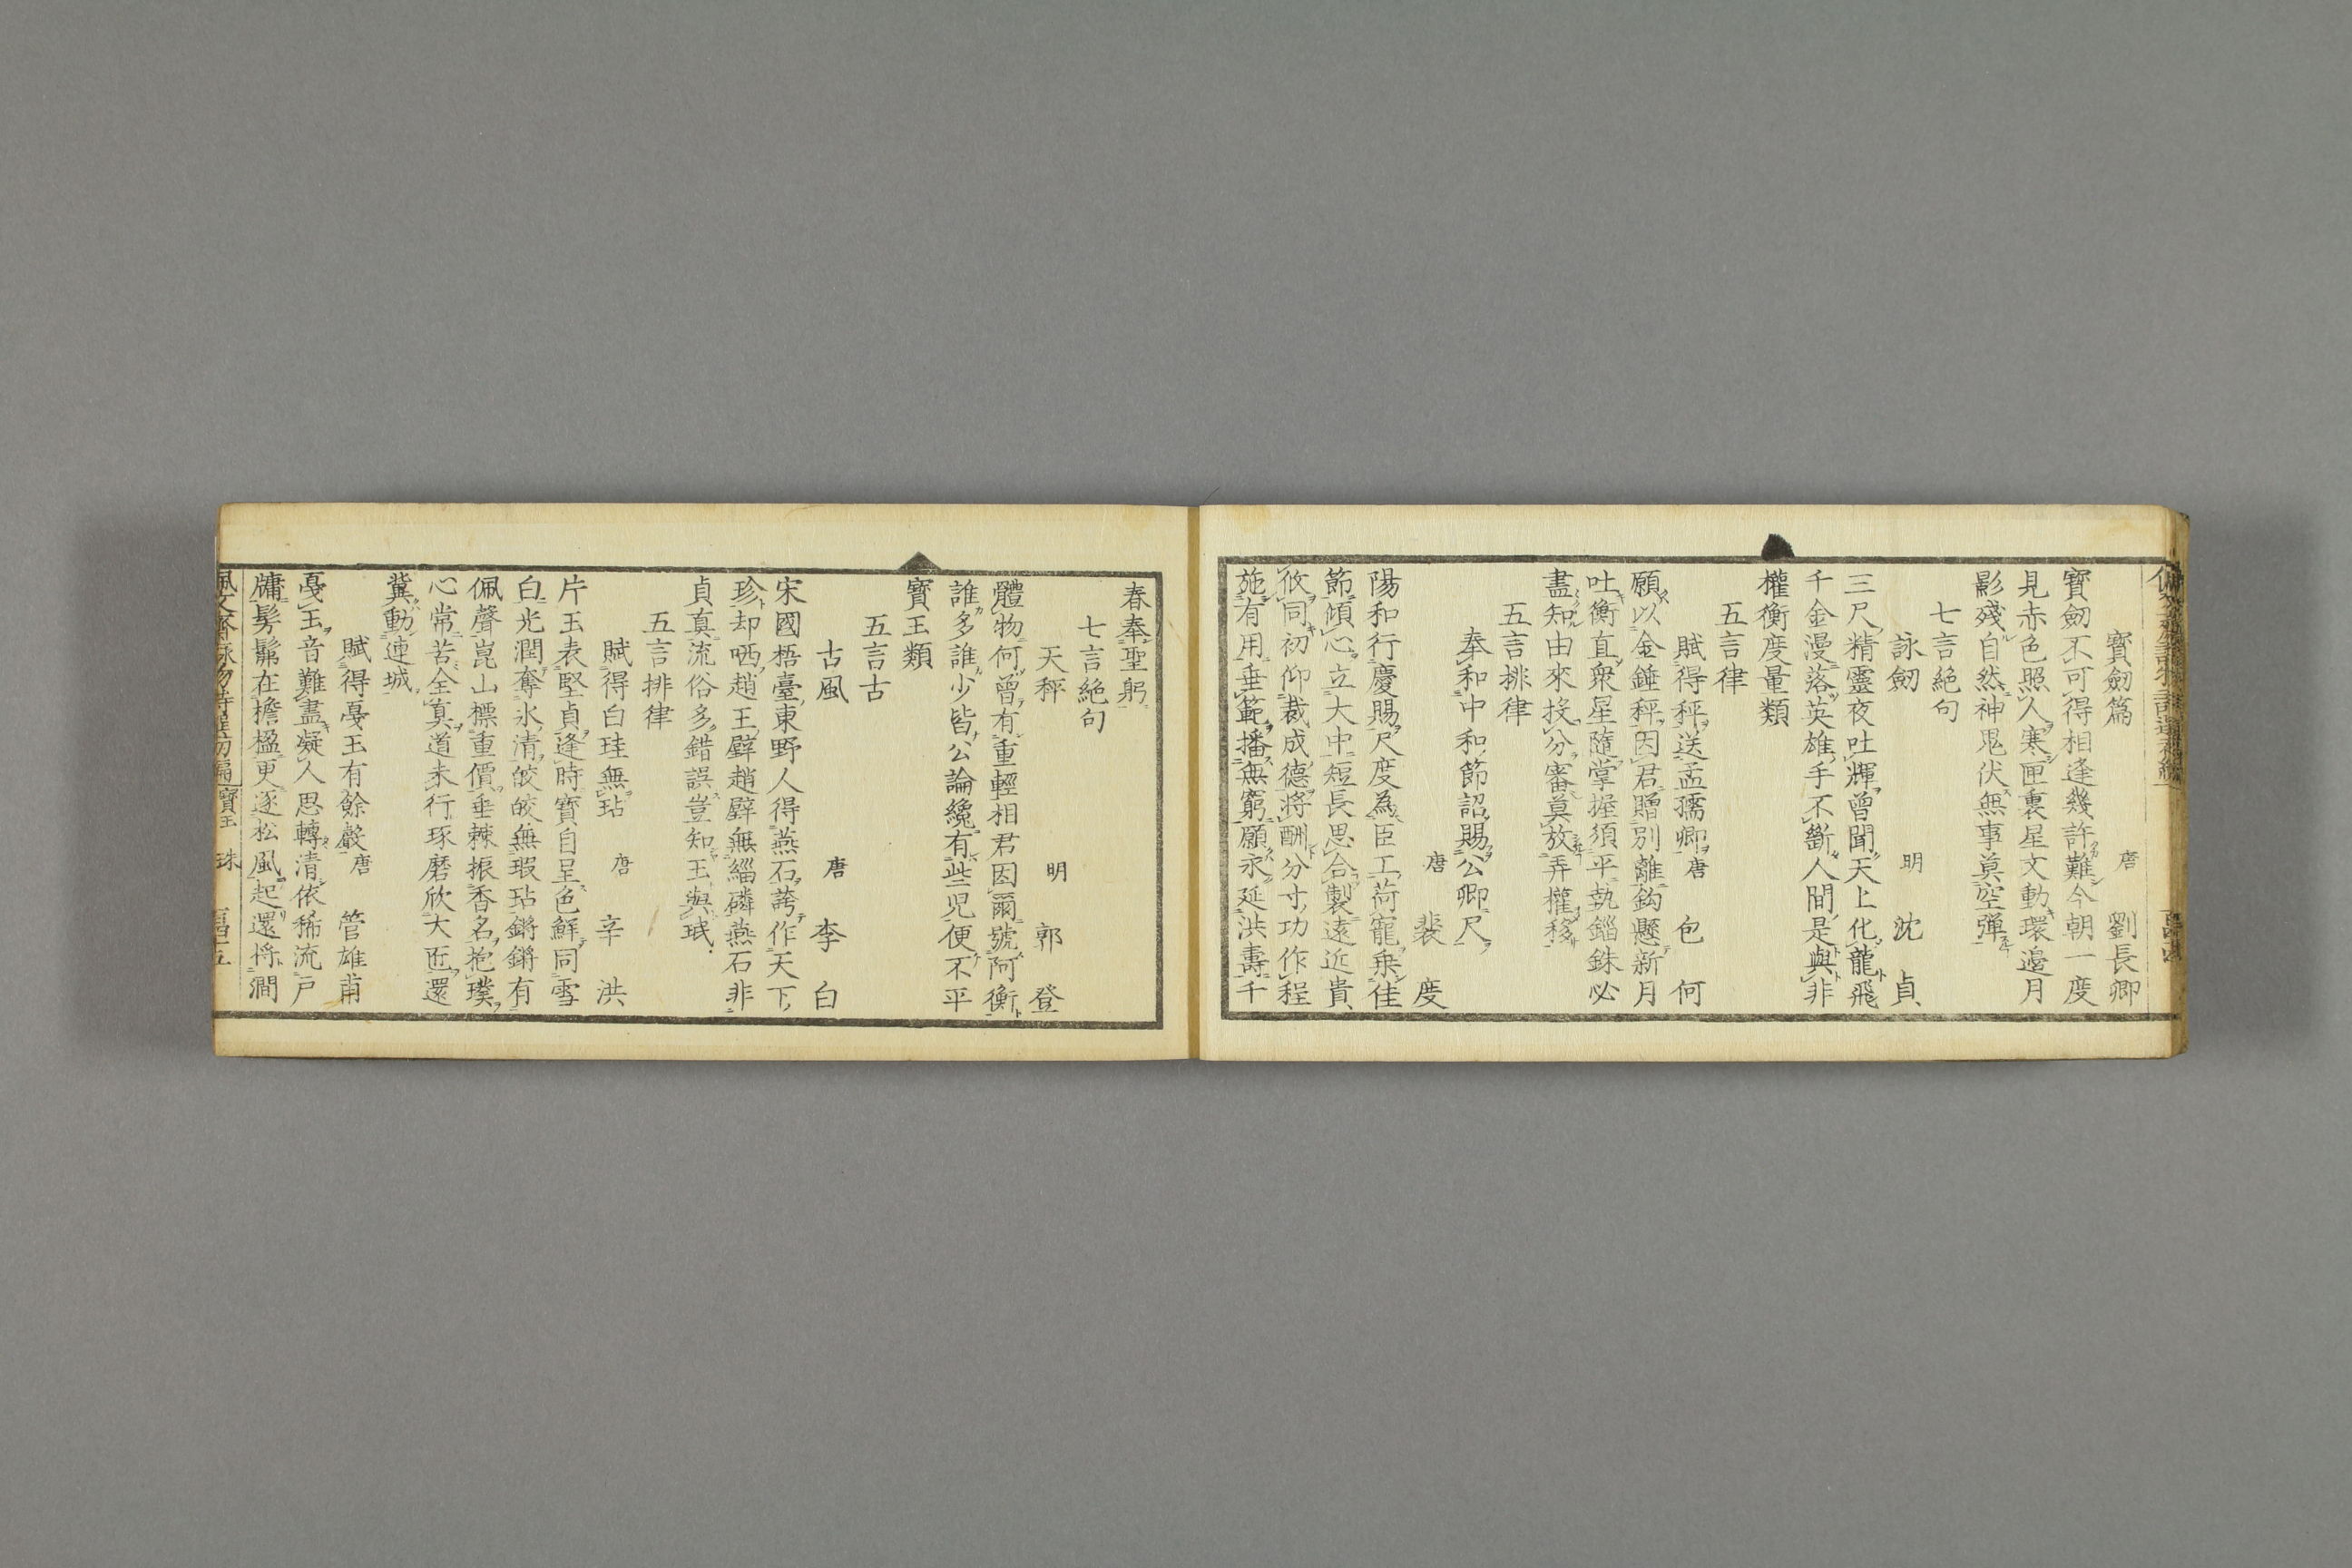 寶劒篇 唐 劉長卿
寶劒不可得相逢幾許難今朝一度
見赤色照人寒匣裏星文動環邊月
影殘自然神鬼伏無事莫空彈
七言絶句
詠劒 明 沈貞
三尺精靈夜吐輝曾聞天上化龍飛
千金漫落英雄手不斷人間是與非
權衡度量類
五言律
賦得秤送孟孺卿 唐 包何
願以金錘秤因君贈別離鈎懸新月
吐衡直衆星隨掌握須平執錙銖必
盡知由來投分審莫放弄權移
五言排律
奉和中和節詔賜公卿尺
唐 裴度
陽和行慶賜尺度為臣工荷寵乗佳
節傾心立大中短長思合製遠近貴
攸同初仰裁成德將酬分寸功作程
施有用垂範播無窮願永延洪壽千
春奉聖躬
七言絶句
天秤 明 郭登
體物何曾有重輕相君因爾號阿衡
誰多誰少皆公論纔有些児便不平
寳玉類
五言古
古風 唐 李白
宋國梧臺東野人得燕石誇作天下
珍却哂趙王璧趙璧無緇磷燕石非
貞真流俗多錯誤豈知玉與珉
五言排律
賦得白珪無玷 唐 辛洪
片玉表堅貞逢時寶自呈色鮮同雪
白光潤奪氷清皎皎無瑕玷鏘鏘有
佩聲崑山標重價垂棘振香名抱璞
心常苦全真道未行琢磨欣大匠還
冀動連城
賦得戞玉有餘聲 唐 管雄甫
戞玉音難盡凝人思轉清依稀流戶
牗髣髴在檐楹更逐松風起還将澗